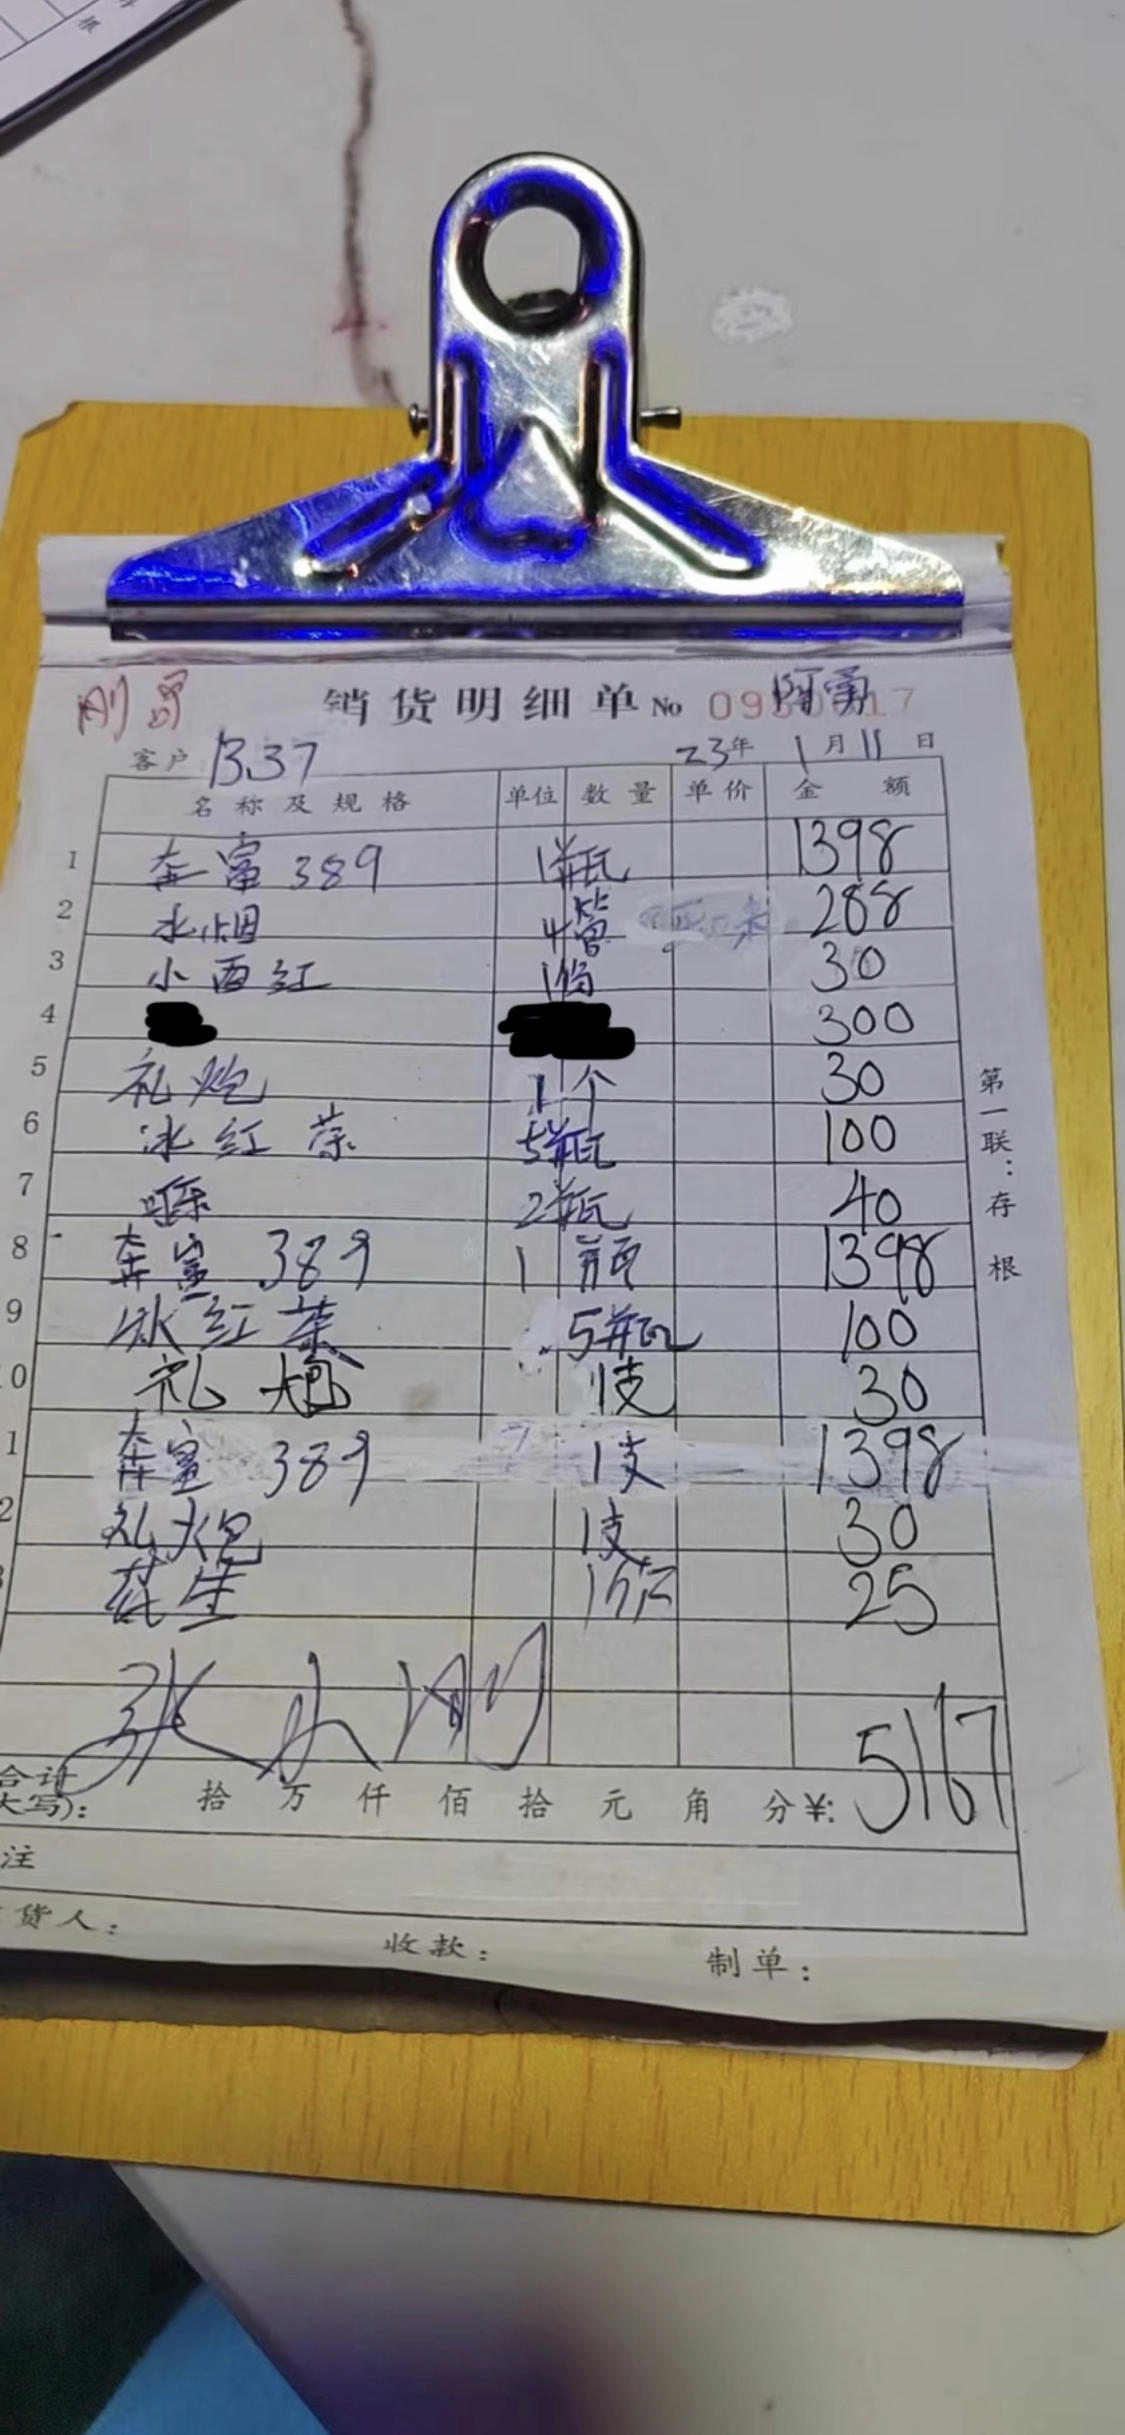 刚哥 销货明细单 No 09 17 阿勇
客户 B37 23年 1月11日
名称及规格 单位 数量 单价 金额
1 奔富389 1瓶 1398
2 水烟 4管 288
3 小西红 1份 30
4 300
5 礼炮 1个 30
6 冰红茶 5瓶 100
7 2瓶 40
8 奔富 389 1 瓶 1398
9 冰红茶 5瓶 100
0 礼炮 1支 30
1 奔富 389 1支 1398
2 礼炮 1支 30
花生 1份 25
张 刚
合计
大写): 拾 万 仟 佰 拾 元 角 分 ¥: 5167
注
货人: 收款: 制单:
第一联:存根